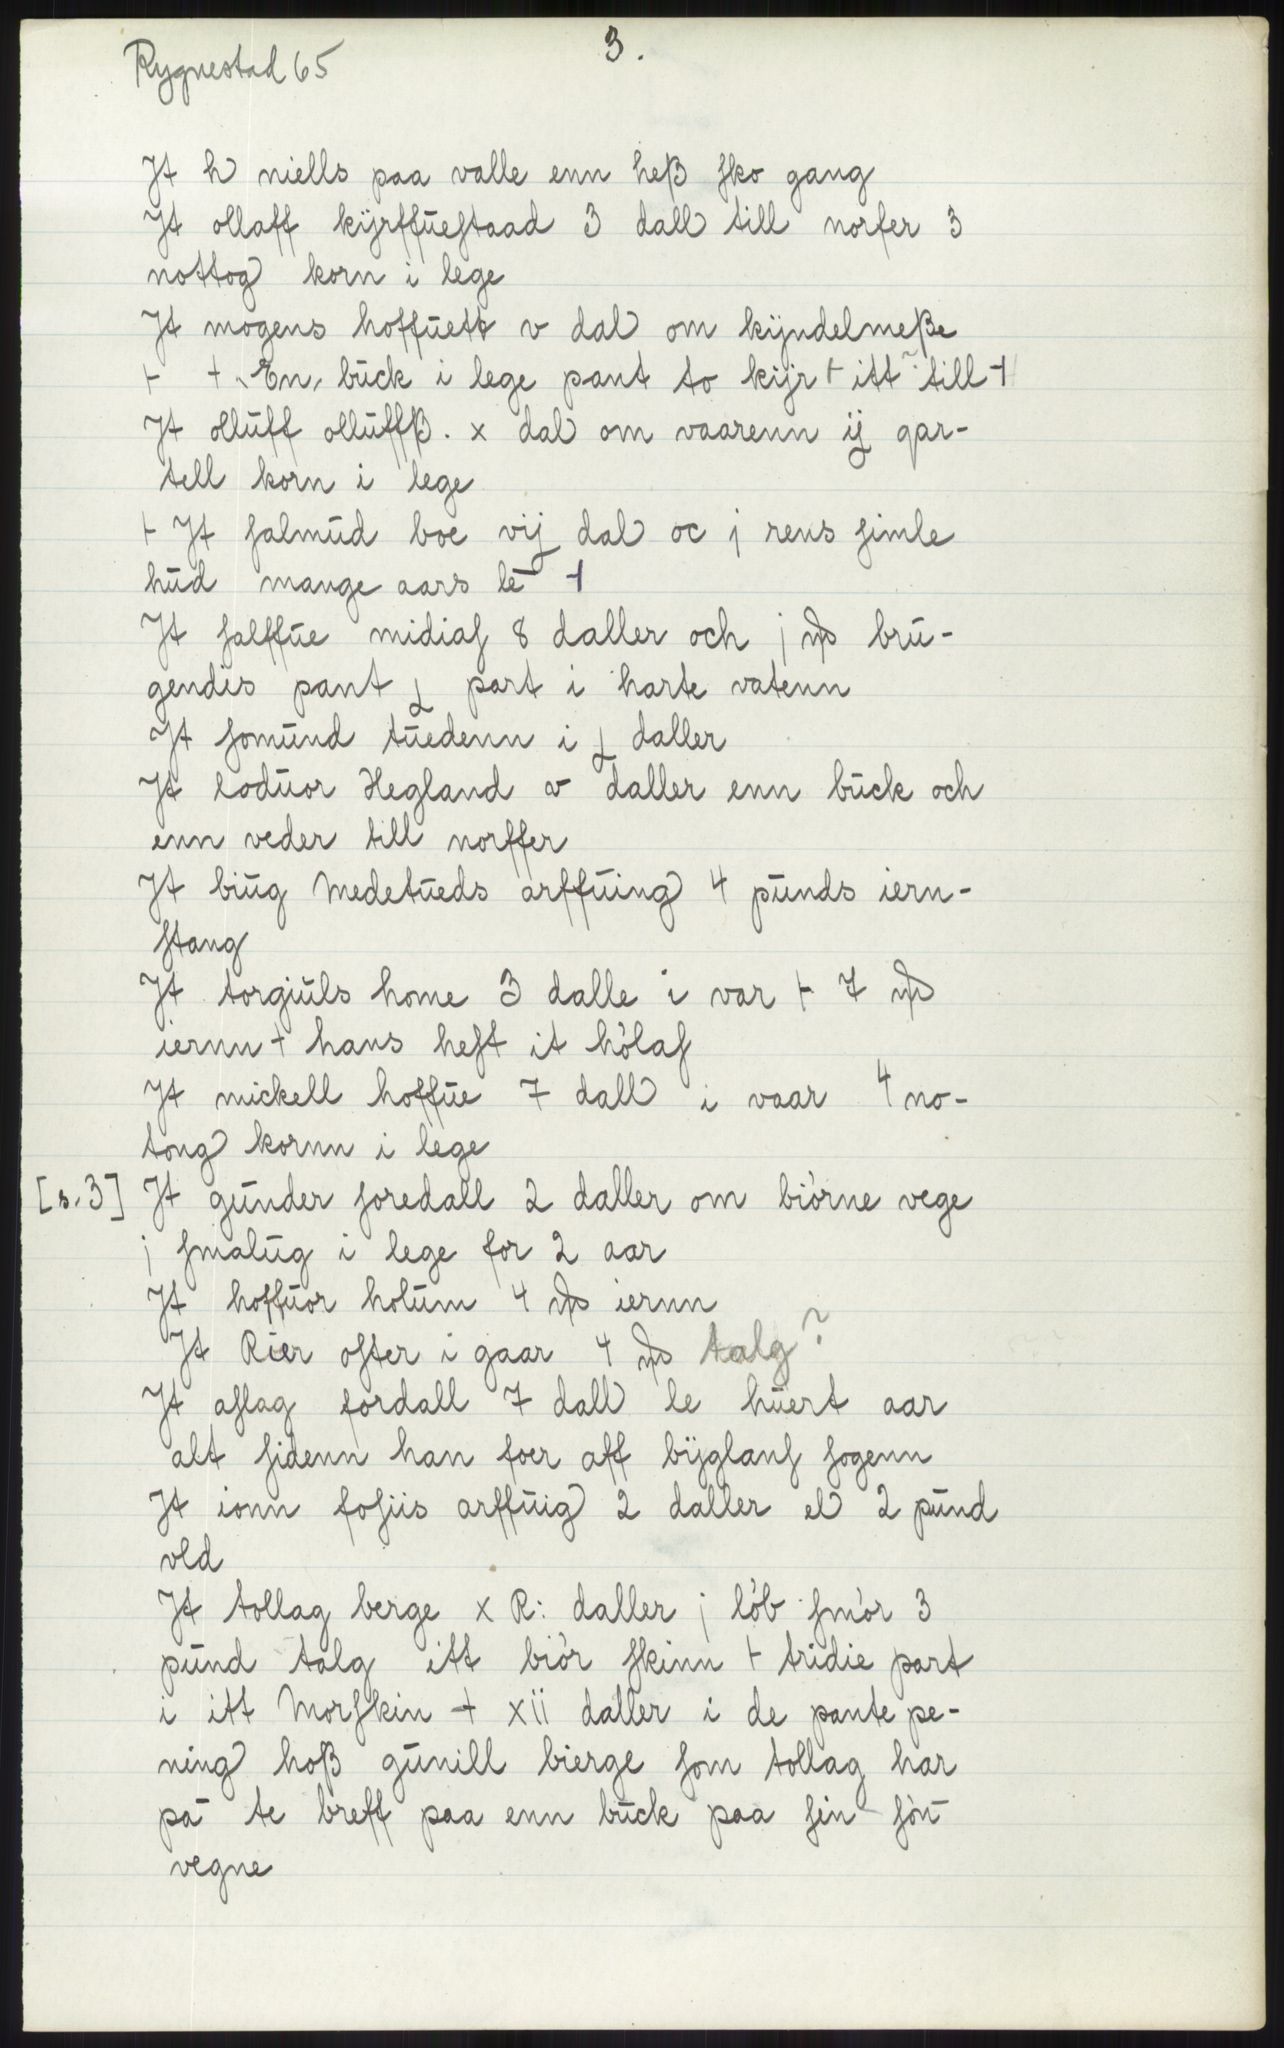 Rygnestad 65
3.
Jt h niells paa valle enn heß ſko gang
Jt ollaff kijrffūeſtaad 3 dall till norfer 3
nottog korn i lege
Jt mogens hoffūett v dal om kijndelmeße
⊢ + En būck i lege pant to kijr ⊢ itt till ⊣
Jt ollūff ollūffß. x dal om vaarenn ij qar-
tell korn i lege
⊢ Jt ſalmūd boe vij dal oc j rens ſimle
hūd mange aars lē ⊣
Jt ſalffūe midiaſ 8 daller och j brū-
gendis pant part i harte vatenn
Jt ſomūnd tūedenn i daller
Jt lodūor Hegland v daller enn būck och
enn veder till norffer
Jt biūg Medetūeds arffūing 4 pūnds iern-
ſtang
Jt torgiūls home 3 dalle i var ⊢ 7
iernn + hans heſt it hólaſ
Jt mickell hoffūe 7 dall i vaar 4 no-
tong kornn i lege
[s. 3] Jt gūnder ſoredall 2 daller om biórne vege
j ſmalūg i lege for 2 aar
Jt hoffūor holūm 4 iernn
Jt Rier oſter i gaar 4 talg?
Jt aſlag fordall 7 dall le hūert aar
alt ſidenn han foer aff bijglanſ ſogenn
Jt ionn foſiis arffūig 2 daller el 2 pūnd
vld
Jt tollag berge x R: daller j lób ſmór 3
pūnd talg itt biór ſkinn ⊢ tridie part
i itt Morſkin + xii daller i de pante pe-
ning hoß gūnill bierge ſom tollag har
pa te breff paa enn būck paa ſin ſón
vegne